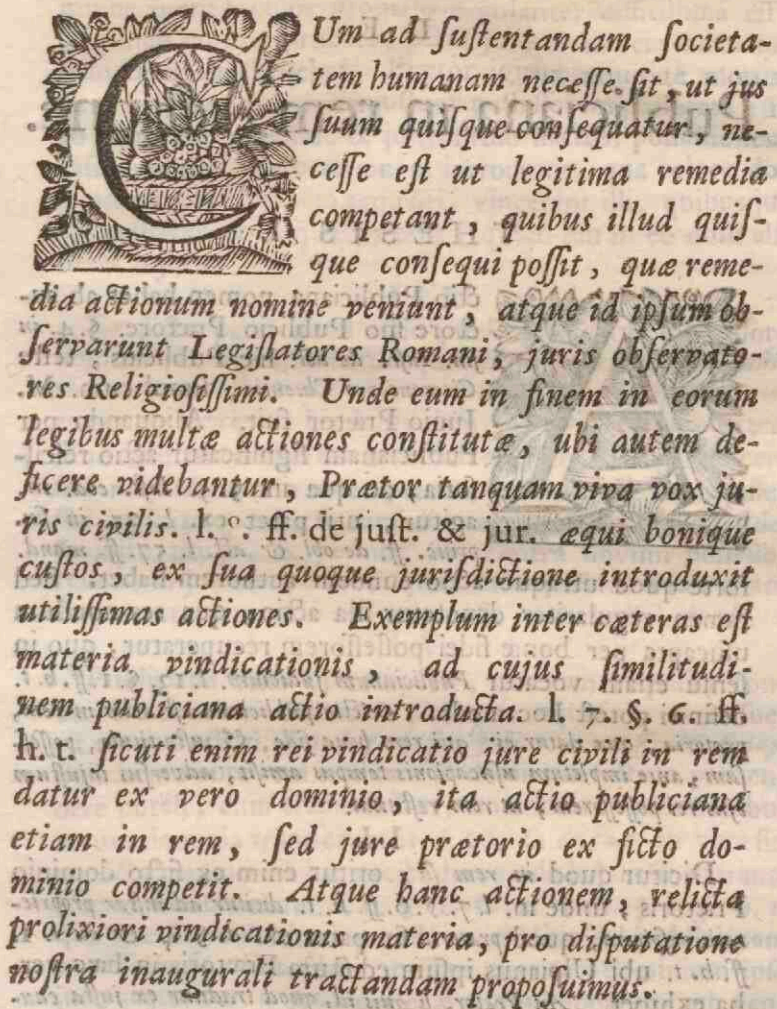 CUm ad ſuſtentandam ſocieta-
tem humanam neceſſe ſit, ut jus
ſuum quiſque conſequatur, ne-
ceſſe eſt ut legitima remedia
competant, quibus illud quiſ-
que conſequi poſſit, quæ reme-
dia actionum nomine veniunt, atque id ipſum ob-
ſervarunt Legiſlatores Romani, juris obſervato-
res Religioſiſſimi. Unde eum in finem in eorum
legibus multæ actiones conſtitutæ, ubi autem de-
ficere videbantur, Prætor tanquam viva vox ju-
ris civilis. l. . ff. de juſt. & jur. æqui bonique
cuſtos, ex ſua quoque juriſdictione introduxit
utiliſſimas actiones. Exemplum inter cæteras eſt
materia vindicationis, ad cujus ſimilitudi-
nem publiciana actio introducta. l. 7. §. 6. ff.
h. t. ſicuti enim rei vindicatio jure civili in rem
datur ex vero dominio, ita actio publiciana
etiam in rem, ſed jure prætorio ex ficto do-
minio competit. Atque hanc actionem, relicta
prolixiori vindicationis materia, pro diſputatione
noſtra inaugurali tractandam propoſuimus.